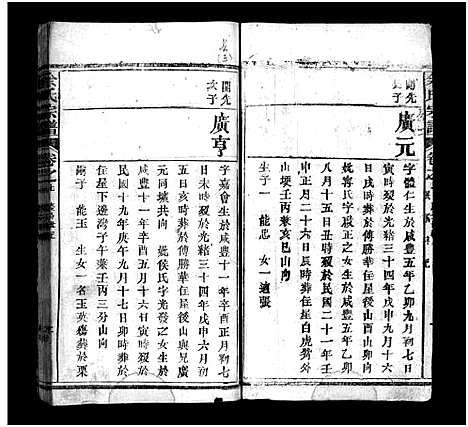 余氏宗譜
開先長子
廣元
字體仁生於咸豐五年乙卯九月初七
日戌時歿於光緒三十四年戊申九月十六
日辰時葬於傅勝華住屋後山
妣郭氏字之女生於咸豐五年乙卯
八月十五日丑時歿於民國二十一年壬
申正月二十六日辰時葬住屋白虎膀外
山埂壬丙兼亥巳山向
生子一 能忠 女一適張
開先次子
廣亨
字嘉會生於咸豐十一年辛酉正月初七
日未時歿於光緒三十四年戊申六月初
五日亥時葬於傅勝華住屋後山與兄廣
元同塋共向 妣侯氏字光發之女生於
咸豐十一年辛酉五月十六日寅時歿於
民國十九年庚午九月十七日卯時葬於
住屋下邊灣子午兼壬丙三分山向
嗣子 能玉 生女一名玉英殤葬於栗
余氏宗譜